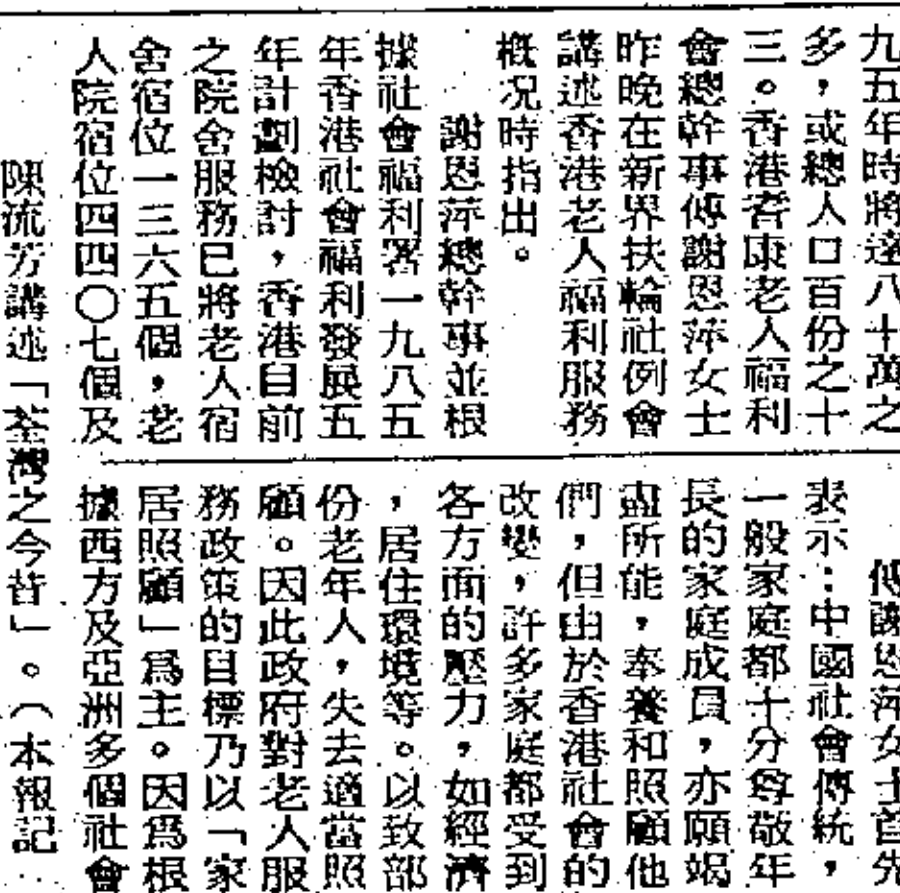 九五年時將達八十萬之
多，或總人口百份之十
三。香港耆康老人福利
會總幹事傅謝恩萍女士
昨晚在新界扶輪社例會
講述香港老人福利服務
概況時指出。
謝恩萍總幹事並根
據社會福利署一九八五
年香港社會福利發展五
年計劃檢討，香港目前
之院舍服務已將老人宿
舍宿位一三六五個，老
人院宿位四四〇七個及
傅謝恩萍女士首先
表示：中國社會傳統，
一般家庭都十分尊敬年
長的家庭成員，亦願竭
盡所能，奉養和照顧他
們，但由於香港社會的
改變，許多家庭都受到
各方面的壓力，如經濟
，居住環境等。以致部
份老年人，失去適當照
顧。因此政府對老人服
務政策的目標乃以「家
居照顧」爲主。因爲根
據西方及亞洲多個社會
陳流芳講述「荃灣之今昔」。（本報記